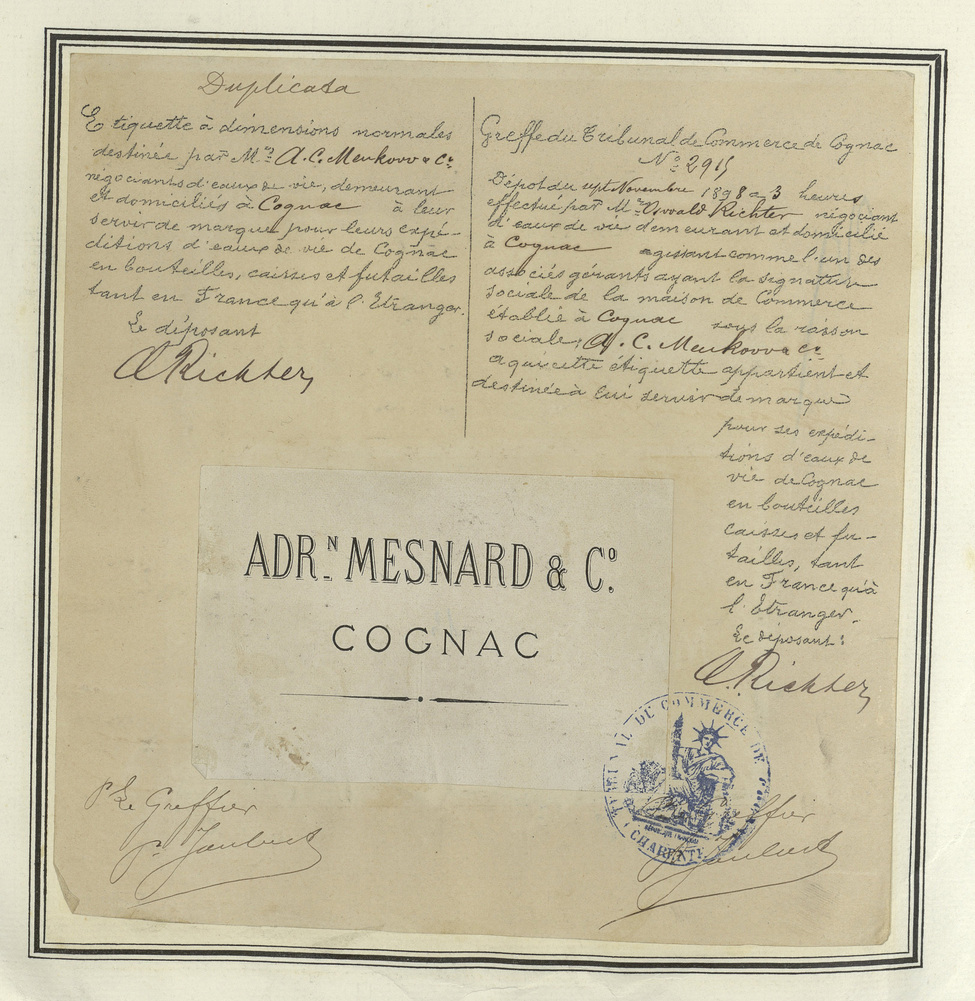 Duplicata
Etiquette à dimensions normales
destinée par M.rs A. C. Meukow & Co.
négociants d'eaux de vie, demeurant
et domiciliés à Cognac à leur
servir de marque pour leurs expé-
ditions d'eaux de vie de Cognac
en bouteilles, caisses et futailles
tant en France qu'à l'Etranger.
Le déposant
O Richter
Greffe du Tribunal de Commerce de Cognac
No. 2915
Dépot du sept Novembre 1898 à 3 heures
effectué par Mr. Oswald Richter négociant
d'eaux de vie demeurant et domicilié
à Cognac agissant comme l'un des
associés gérants ayant la signature
sociale de la maison de Commerce
établie à Cognac sous la raison
sociale: A. C. Meukow & Co.
à qui cette étiquette appartient et
destinée à lui servir de marque
pour ses expédi-
tions d'eaux de
vie de Cognac
en bouteilles
caisses et fu-
tailles, tant
en France qu'à
l'Etranger.
Le déposant:
O. Richter
ADR.N MESNARD & Co.
COGNAC
TRIBUNAL DE COMMERCE DE
CHARENTE
P Le Greffier
Greffier